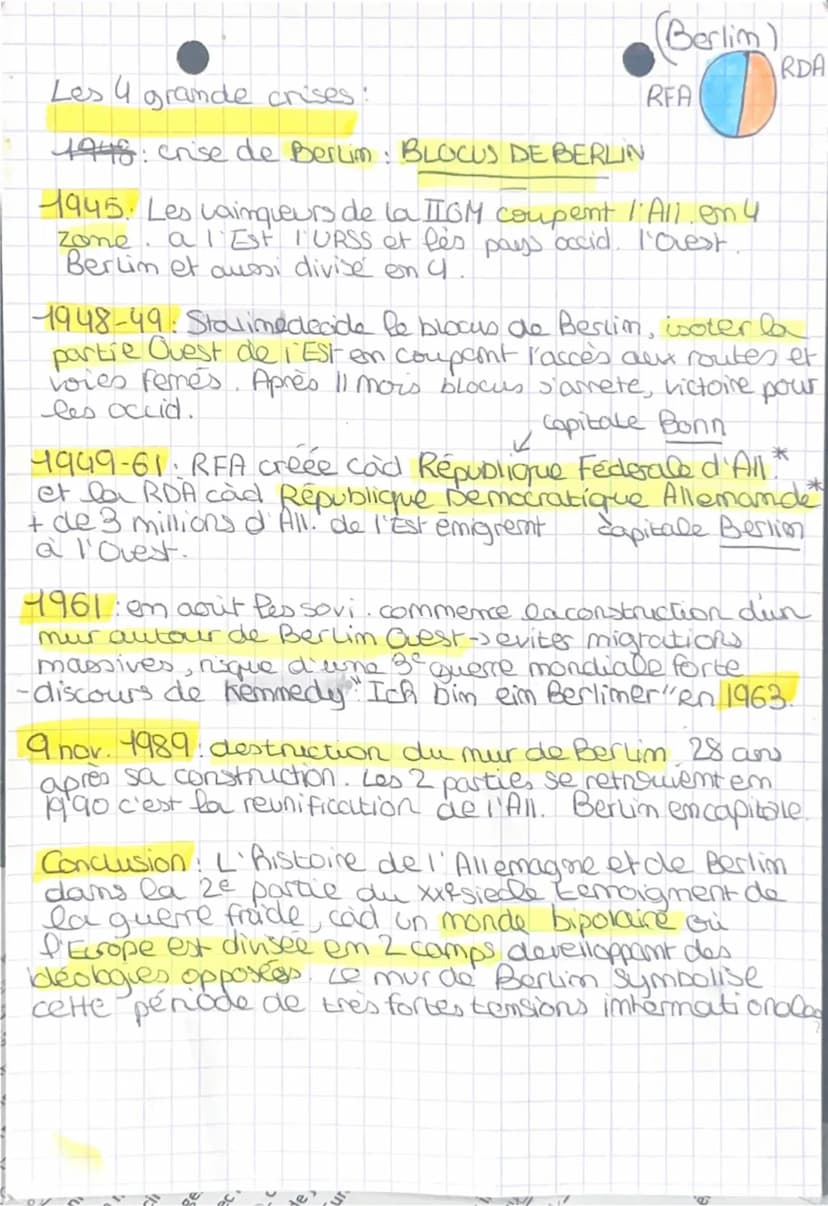 (Berlim)
RFA
RDA
Les 4 grande crises:
1948: crise de Berlim: BLOCUS DE BERLIN
1945: Les vaimqueurs de la IIGM coupent l'All. en 4
zone. a l'Est l'URSS et les pays occid. l'Ouest.
Berlim et aussi divisé en 4.
1948-49: Stalime decide le blocus de Berlim, isoler la
partie Ouest de l'Est en coupant l'accès aux routes et
voies ferrés. Après 11 mois blocus s'arrete, victoire pour
les occid.
capitale Bonn
1949-61: RFA créée càd République Féderale d'All.*
et la RDA càd République Democratique Allemande*
+ de 3 millions d'All. de l'Est émigrent capitale Berlin
à l'Ouest.
1961: en aout les sovi. commence la construction d'un
mur autour de Berlim Ouest -> evites migrations
massives, risque d'une 3e guerre mondiale forte
-discours de Kennedy "Ich bim eim Berlimer" en 1963.
9 nov. 1989: destruction du mur de Berlim 28 ans
après sa construction. Les 2 parties se retrouvent en
1990 c'est la reunification de l'All. Berlim en capitale.
Conclusion: L'histoire de l'Allemagne et de Berlim
dans la 2e partie du XXe siecle temoignent de
la guerre froide, càd un monde bipolaire où
l'Europe est divisée en 2 camps developpant des
idéologies opposées. Le mur de Berlim symbolise
cette période de très fortes tensions internationales